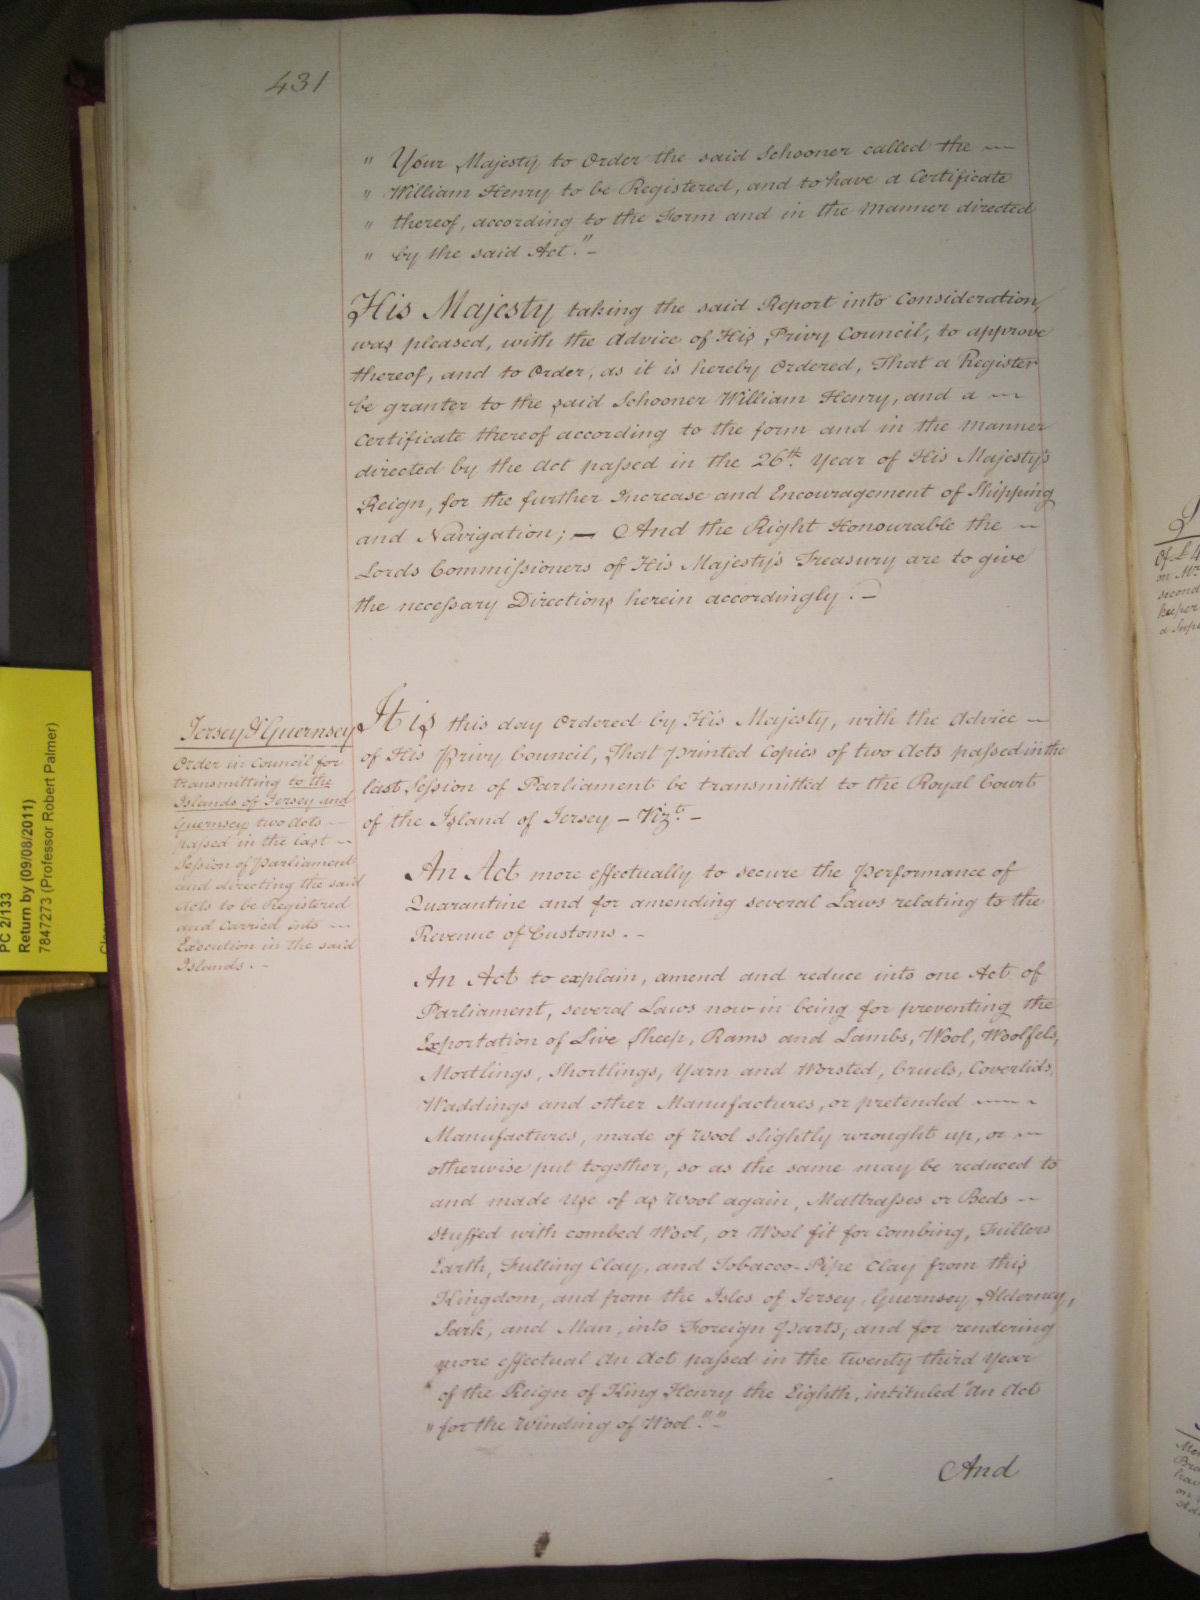 431
" Your Majesty to Order the said Schooner called the
" William Henry to be Registered, and to have a Certificate
" thereof, according to the Form and in the Manner directed
" by the said Act." -
His Majesty taking the said Report into Consideration,
was pleased, with the Advice of His Privy Council, to approve
thereof, and to Order, as it is hereby Ordered, That a Register
be granter to the said Schooner William Henry, and a
Certificate thereof according to the form and in the Manner
directed by the Act passed in the 26th. Year of His Majesty's
Reign, for the further Increase and Encouragement of Shipping
and Navigation; — And the Right Honourable the
Lords Commissioners of His Majesty's Treasury are to give
the necessary Directions herein accordingly. -
Jersey & Guernsey
Order in Council for
transmitting to the
Islands of Jersey and
Guernsey two Acts
passed in the last
Session of Parliament
and directing the said
Acts to be Registered
and carried into
Execution in the said
Islands. -
It is this day Ordered by His Majesty, with the Advice
of His Privy Council, That printed Copies of two Acts passed in the
last Session of Parliament be transmitted to the Royal Court
of the Island of Jersey - Vizt. -
An Act more effectually to secure the Performance of
Quarantine and for amending several Laws relating to the
Revenue of Customs. -
An Act to explain, amend and reduce into one Act of
Parliament, several Laws now in being for preventing the
Exportation of Live Sheep, Rams and Lambs, Wool, Woolfels,
Mortlings, Shortlings, Yarn and Worsted, Cruels, Coverlids,
Waddings and other Manufactures, or pretended
Manufactures, made of Wool slightly wrought up, or
otherwise put together, so as the same may be reduced to
and made Use of as Wool again, Mattrasses or Beds
stuffed with combed Wool, or Wool fit for Combing, Fullers
Earth, Fulling Clay, and Tobacco-Pipe Clay from this
Kingdom, and from the Isles of Jersey, Guernsey, Alderney,
Sark, and Man, into Foreign Parts; and for rendering
more effectual an Act passed in the twenty third Year
" of the Reign of King Henry the Eighth, intituled "An Act
" for the Winding of Wool." "
And
PC 2/133
Return by (09/08/2011)
7847273 (Professor Robert Palmer)
of £4
on Mr
second
keeper